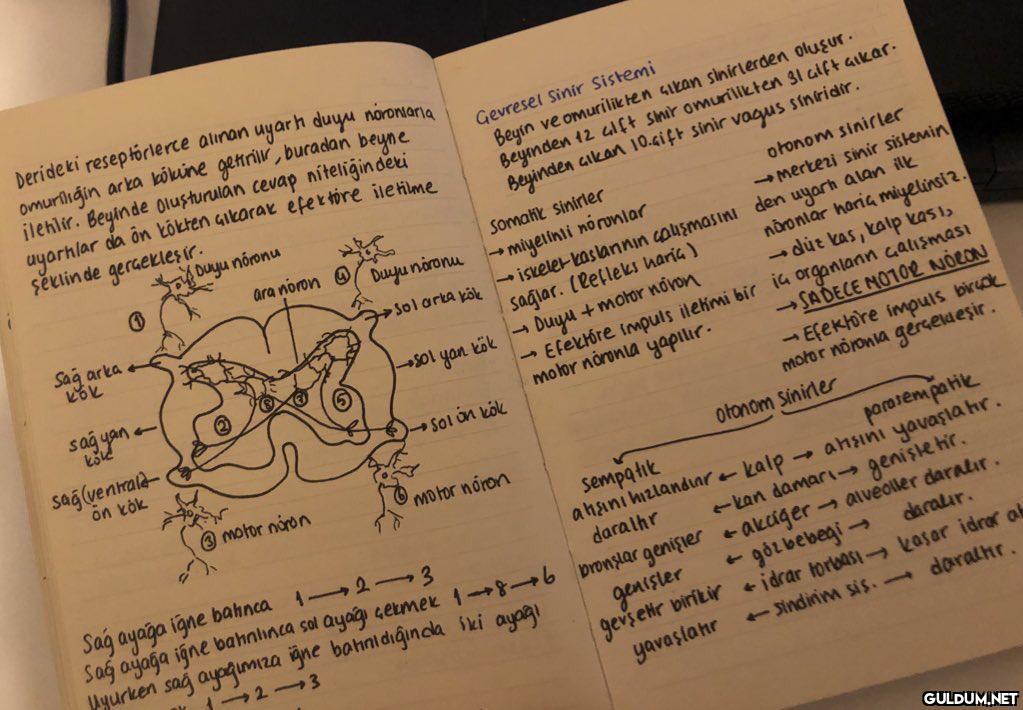 Derideki reseptörlerce alınan uyartı duyu nöronlarla
omuriliğin arka köküne getirilir, buradan beyne
iletilir. Beyinde oluşturulan cevap niteliğindeki
uyartılar da ön kökten çıkarak efektöre iletilme
şeklinde gerçekleşir.
Duyu nöronu
ara nöron
Duyu nöronu
1
4
sol arka kök
Sağ arka
kök
sol yan kök
2
8
7
5
sağ yan
kök
sol ön kök
sağ (ventral)
ön kök
3
motor nöron
6
motor nöron
Sağ ayağa iğne batınca 1 → 2 → 3
Sağ ayağa iğne batırılınca sol ayağı çekmek 1 → 8 → 6
Uyurken sağ ayağımıza iğne batırıldığında iki ayağı
1 → 2 → 3
Çevresel Sinir Sistemi
Beyin ve omurilikten çıkan sinirlerden oluşur.
Beyinden 12 çift sinir omurilikten 31 çift çıkar.
Beyinden çıkan 10.çift sinir vagus siniridir.
somatik sinirler
→ miyelinli nöronlar
→ iskelet kaslarının çalışmasını
sağlar. (Refleks hariç)
→ Duyu + motor nöron
→ Efektöre impuls iletimi bir
motor nöronla yapılır.
otonom sinirler
→ merkezi sinir sistemin
den uyartı alan ilk
nöronlar hariç miyelinsiz.
→ düz kas, kalp kası,
iç organların çalışması
→ SADECE MOTOR NÖRON
→ Efektöre impuls birçok
motor nöronla gerçekleşir.
otonom sinirler
sempatik
parasempatik
atışını hızlandırır ← kalp → atışını yavaşlatır.
daraltır ← kan damarı → genişletir.
bronşlar genişler ← akciğer → alveoller daralır.
genişler ← gözbebeği → daralır.
gevşetir birikir ← idrar torbası → kasar idrar at
yavaşlatır ← sindirim sis. → daraltır.
GULDUM.NET